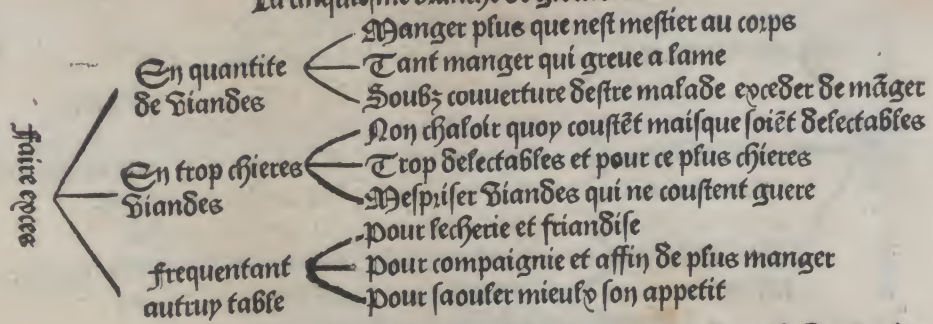 La cinquiesme branche de
Faire exces
En quantite
de viandes
Manger plus que nest mestier au corps
Tant manger qui greue a lame
Soubz couuerture destre malade exceder de mãger
En trop chieres
viandes
Non chaloir quoy coustẽt maisque soiẽt delectables
Trop delectables et pour ce plus chieres
Mespriser viandes qui ne coustent guere
frequentant
autruy table
Pour lecherie et friandise
Pour compaignie et affin de plus manger
Pour saouler mieulx son appetit